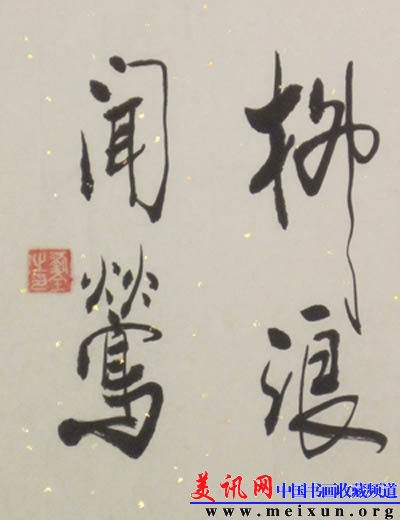 柳浪
闻莺
美讯网 中国书画收藏频道
www.meixun.org